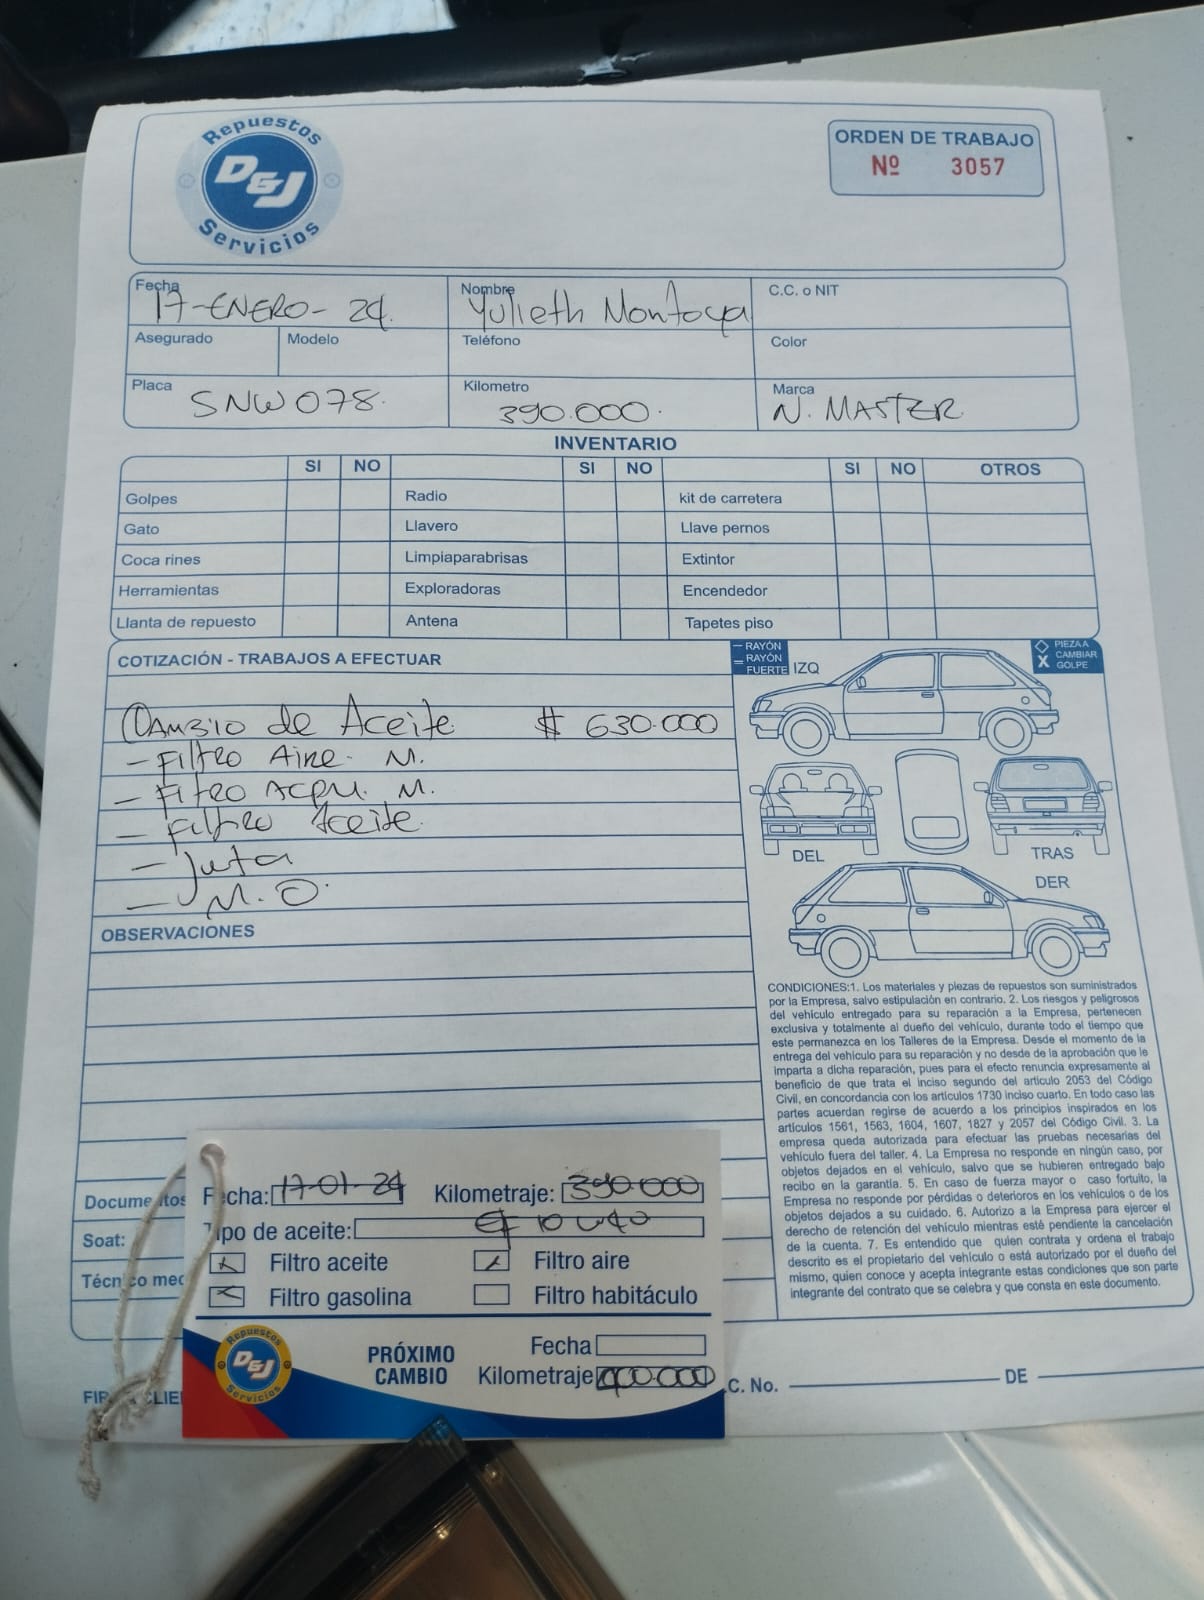 Repuestos
D&J
Servicios
ORDEN DE TRABAJO
Nº 3057
Fecha 17-ENERO-24.
Nombre Yulieth Montoya
C.C. o NIT
Asegurado
Modelo
Teléfono
Color
Placa SNW078.
Kilometro 390.000.
Marca N. MASTER
INVENTARIO
SI NO SI NO SI NO OTROS
Golpes Radio kit de carretera
Gato Llavero Llave pernos
Coca rines Limpiaparabrisas Extintor
Herramientas Exploradoras Encendedor
Llanta de repuesto Antena Tapetes piso
COTIZACIÓN - TRABAJOS A EFECTUAR
Cambio de Aceite $ 630.000
- Filtro Aire. M.
- Filtro ACPM. M.
- Filtro Aceite.
- M.O.
OBSERVACIONES
RAYÓN
RAYÓN
FUERTE
IZQ
PIEZA A
CAMBIAR
X GOLPE
DEL
TRAS
DER
CONDICIONES:1. Los materiales y piezas de repuestos son suministrados
por la Empresa, salvo estipulación en contrario. 2. Los riesgos y peligrosos
del vehículo entregado para su reparación a la Empresa, pertenecen
exclusiva y totalmente al dueño del vehículo, durante todo el tiempo que
este permanezca en los Talleres de la Empresa. Desde el momento de la
entrega del vehículo para su reparación y no desde de la aprobación que le
imparta a dicha reparación, pues para el efecto renuncia expresamente al
beneficio de que trata el inciso segundo del articulo 2053 del Código
Civil, en concordancia con los artículos 1730 inciso cuarto. En todo caso las
partes acuerdan regirse de acuerdo a los principios inspirados en los
artículos 1561, 1563, 1604, 1607, 1827 y 2057 del Código Civil. 3. La
empresa queda autorizada para efectuar las pruebas necesarias del
vehículo fuera del taller. 4. La Empresa no responde en ningún caso, por
objetos dejados en el vehículo, salvo que se hubieren entregado bajo
recibo en la garantía. 5. En caso de fuerza mayor o caso fortuito, la
Empresa no responde por pérdidas o deterioros en los vehículos o de los
objetos dejados a su cuidado. 6. Autorizo a la Empresa para ejercer el
derecho de retención del vehículo mientras esté pendiente la cancelación
de la cuenta. 7. Es entendido que quien contrata y ordena el trabajo
descrito es el propietario del vehículo o está autorizado por el dueño del
mismo, quien conoce y acepta integrante estas condiciones que son parte
integrante del contrato que se celebra y que consta en este documento.
Documentos
Soat:
Técnico mec
C. No. DE
Fecha: 17-01-24 Kilometraje: 390.000
Tipo de aceite: 10W40
Filtro aceite Filtro aire
Filtro gasolina Filtro habitáculo
Repuestos
D&J
Servicios
PRÓXIMO
CAMBIO
Fecha
Kilometraje 400.000